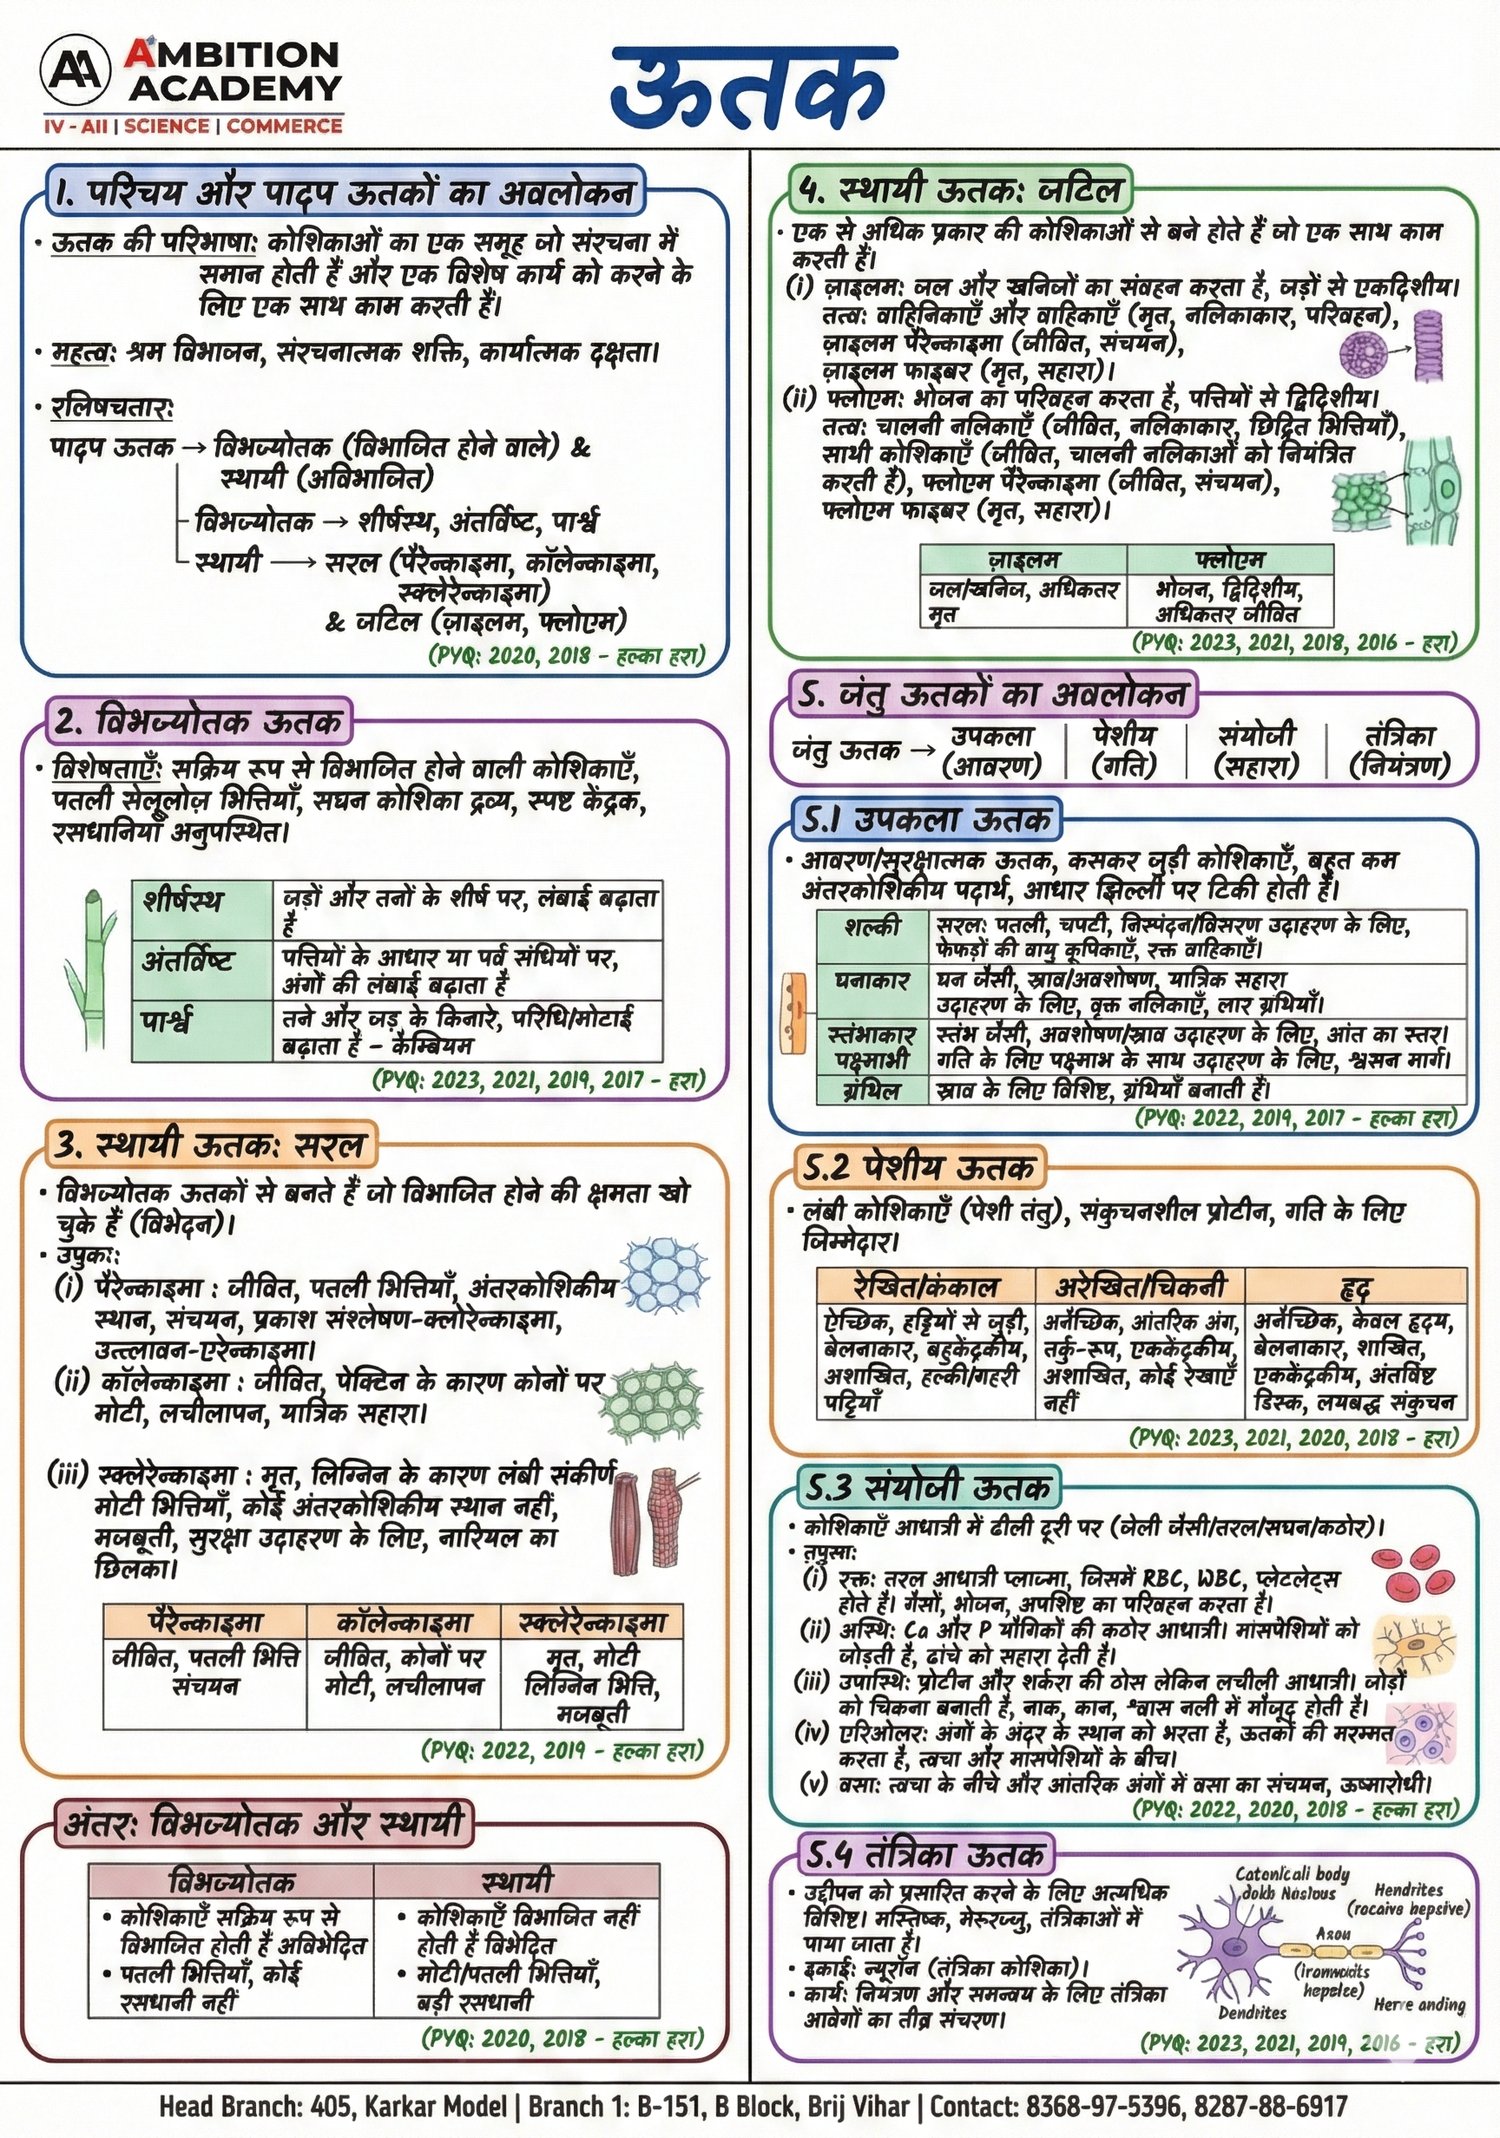 AA AMBITION
ACADEMY
IV - AII | SCIENCE | COMMERCE
ऊतक
1. परिचय और पादप ऊतकों का अवलोकन
· ऊतक की परिभाषा: कोशिकाओं का एक समूह जो संरचना में
समान होती हैं और एक विशेष कार्य को करने के
लिए एक साथ काम करती हैं।
· महत्व: श्रम विभाजन, संरचनात्मक शक्ति, कार्यात्मक दक्षता।
· रलिषचतार:
पादप ऊतक → विभज्योतक (विभाजित होने वाले) &
स्थायी (अविभाजित)
विभज्योतक → शीर्षस्थ, अंतर्विष्ट, पार्श्व
स्थायी → सरल (पैरेन्काइमा, कॉलेन्काइमा,
स्क्लेरेन्काइमा)
& जटिल (ज़ाइलम, फ्लोएम)
(PYQ: 2020, 2018 - हल्का हरा)
2. विभज्योतक ऊतक
· विशेषताएँ: सक्रिय रूप से विभाजित होने वाली कोशिकाएँ,
पतली सेलूलोज़ भित्तियाँ, सघन कोशिका द्रव्य, स्पष्ट केंद्रक,
रसधानियाँ अनुपस्थित।
शीर्षस्थ जड़ों और तनों के शीर्ष पर, लंबाई बढ़ाता
है
अंतर्विष्ट पत्तियों के आधार या पर्व संधियों पर,
अंगों की लंबाई बढ़ाता है
पार्श्व तने और जड़ के किनारे, परिधि/मोटाई
बढ़ाता है - कैम्बियम
(PYQ: 2023, 2021, 2019, 2017 - हरा)
3. स्थायी ऊतक: सरल
· विभज्योतक ऊतकों से बनते हैं जो विभाजित होने की क्षमता खो
चुके हैं (विभेदन)।
· उपुकः:
(i) पैरेन्काइमा : जीवित, पतली भित्तियाँ, अंतरकोशिकीय
स्थान, संचयन, प्रकाश संश्लेषण-क्लोरेन्काइमा,
उत्त्लावन-एरेन्काइमा।
(ii) कॉलेन्काइमा : जीवित, पेक्टिन के कारण कोनों पर
मोटी, लचीलापन, यात्रिक सहारा।
(iii) स्क्लेरेन्काइमा : मृत, लिग्निन के कारण लंबी संकीर्ण
मोटी भित्तियाँ, कोई अंतरकोशिकीय स्थान नहीं,
मजबूती, सुरक्षा उदाहरण के लिए, नारियल का
छिलका।
पैरेन्काइमा कॉलेन्काइमा स्क्लेरेन्काइमा
जीवित, पतली भित्ति जीवित, कोनों पर मृत, मोटी
संचयन मोटी, लचीलापन लिग्निन भित्ति,
मजबूती
(PYQ: 2022, 2019 - हल्का हरा)
अंतर: विभज्योतक और स्थायी
विभज्योतक स्थायी
• कोशिकाएँ सक्रिय रूप से • कोशिकाएँ विभाजित नहीं
विभाजित होती हैं अविभेदित होती हैं विभेदित
• पतली भित्तियाँ, कोई • मोटी/पतली भित्तियाँ,
रसधानी नहीं बड़ी रसधानी
(PYQ: 2020, 2018 - हल्का हरा)
4. स्थायी ऊतक: जटिल
· एक से अधिक प्रकार की कोशिकाओं से बने होते हैं जो एक साथ काम
करती हैं।
(i) ज़ाइलम: जल और खनिजों का संवहन करता है, जड़ों से एकदिशीय।
तत्व: वाहिनिकाएँ और वाहिकाएँ (मृत, नलिकाकार, परिवहन),
ज़ाइलम पैरेन्काइमा (जीवित, संचयन),
ज़ाइलम फाइबर (मृत, सहारा)।
(ii) फ्लोएम: भोजन का परिवहन करता है, पत्तियों से द्विदिशीय।
तत्व: चालनी नलिकाएँ (जीवित, नलिकाकार, छिद्रित भित्तियाँ),
साथी कोशिकाएँ (जीवित, चालनी नलिकाओं को नियंत्रित
करती हैं), फ्लोएम पैरेन्काइमा (जीवित, संचयन),
फ्लोएम फाइबर (मृत, सहारा)।
ज़ाइलम फ्लोएम
जल/खनिज, अधिकतर भोजन, द्विदिशीय,
मृत अधिकतर जीवित
(PYQ: 2023, 2021, 2018, 2016 - हरा)
5. जंतु ऊतकों का अवलोकन
जंतु ऊतक → उपकला पेशीय संयोजी तंत्रिका
(आवरण) (गति) (सहारा) (नियंत्रण)
5.1 उपकला ऊतक
· आवरण/सुरक्षात्मक ऊतक, कसकर जुड़ी कोशिकाएँ, बहुत कम
अंतरकोशिकीय पदार्थ, आधार झिल्ली पर टिकी होती हैं।
शल्की सरल: पतली, चपटी, निस्पंदन/विसरण उदाहरण के लिए,
फेफड़ों की वायु कूपिकाएँ, रक्त वाहिकाएँ।
घनाकार घन जैसी, स्राव/अवशोषण, यात्रिक सहारा
उदाहरण के लिए, वृक्क नलिकाएँ, लार ग्रंथियाँ।
स्तंभाकार स्तंभ जैसी, अवशोषण/स्राव उदाहरण के लिए, आंत का स्तर।
पक्ष्माभी गति के लिए पक्ष्माभ के साथ उदाहरण के लिए, श्वसन मार्ग।
ग्रंथिल स्राव के लिए विशिष्ट, ग्रंथियाँ बनाती हैं।
(PYQ: 2022, 2019, 2017 - हल्का हरा)
5.2 पेशीय ऊतक
· लंबी कोशिकाएँ (पेशी तंतु), संकुचनशील प्रोटीन, गति के लिए
जिम्मेदार।
रेखित/कंकाल अरेखित/चिकनी हृद
ऐच्छिक, हड्डियों से जुड़ी, अनैच्छिक, आंतरिक अंग, अनैच्छिक, केवल हृदय,
बेलनाकार, बहुकेंद्रकीय, तर्कु-रूप, एककेंद्रकीय, बेलनाकार, शाखित,
अशाखित, हल्की/गहरी अशाखित, कोई रेखाएँ एककेंद्रकीय, अंतर्विष्ट
पट्टियाँ नहीं डिस्क, लयबद्ध संकुचन
(PYQ: 2023, 2021, 2020, 2018 - हरा)
5.3 संयोजी ऊतक
· कोशिकाएँ आधात्री में ढीली दूरी पर (जेली जैसी/तरल/सघन/कठोर)।
· त़पुसा:
(i) रक्त: तरल आधात्री प्लाज्मा, जिसमें RBC, WBC, प्लेटलेट्स
होते हैं। गैसों, भोजन, अपशिष्ट का परिवहन करता है।
(ii) अस्थि: Ca और P यौगिकों की कठोर आधात्री। मांसपेशियों को
जोड़ती है, ढांचे को सहारा देती है।
(iii) उपास्थि: प्रोटीन और शर्करा की ठोस लेकिन लचीली आधात्री। जोड़ों
को चिकना बनाती है, नाक, कान, श्वास नली में मौजूद होती है।
(iv) एरिओलर: अंगों के अंदर के स्थान को भरता है, ऊतकों की मरम्मत
करता है, त्वचा और मांसपेशियों के बीच।
(v) वसा: त्वचा के नीचे और आंतरिक अंगों में वसा का संचयन, ऊष्मारोधी।
(PYQ: 2022, 2020, 2018 - हल्का हरा)
5.4 तंत्रिका ऊतक
· उद्दीपन को प्रसारित करने के लिए अत्यधिक
विशिष्ट। मस्तिष्क, मेरूरज्जु, तंत्रिकाओं में
पाया जाता है।
· इकाई: न्यूरॉन (तंत्रिका कोशिका)।
· कार्य: नियंत्रण और समन्वय के लिए तंत्रिका
आवेगों का तीव्र संचरण।
Catonlcali body
dokb Naslous
Hendrites
(rocaive hepsive)
Axou
(Ironwacits
hepelce)
Dendrites
Herre anding
(PYQ: 2023, 2021, 2019, 2016 - हरा)
Head Branch: 405, Karkar Model | Branch 1: B-151, B Block, Brij Vihar | Contact: 8368-97-5396, 8287-88-6917